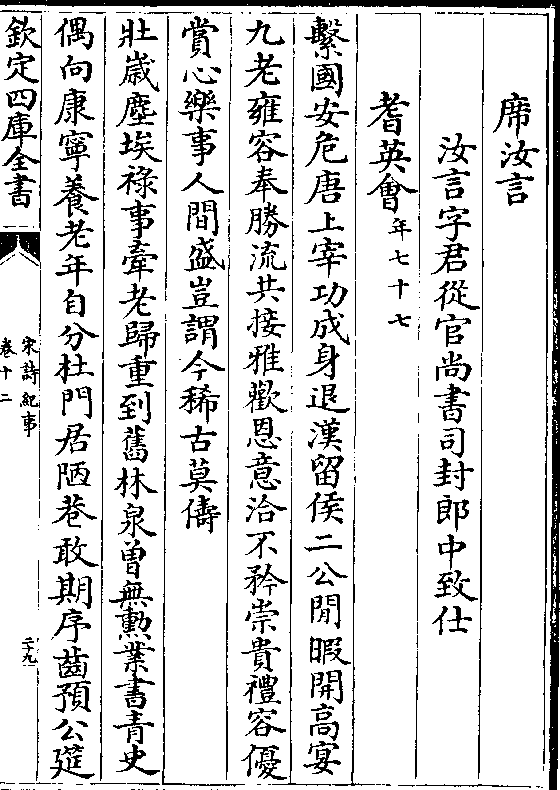 席汝言
汝言字君從官尚書司封郎中致仕
耆英會年七十七
繫國安危唐上宰功成身退漢留侯二公閒暇開高宴
九老雍容奉勝流共接雅歡恩意洽不矜崇貴禮容優
賞心樂事人間盛豈謂今稀古莫儔
壯歲塵埃祿事牽老歸重到舊林泉曾無勲業書青史
偶向康寧養老年自分杜門居陋巷敢期序齒預公筵
欽定四庫全書
宋詩紀事
卷十二
二十九